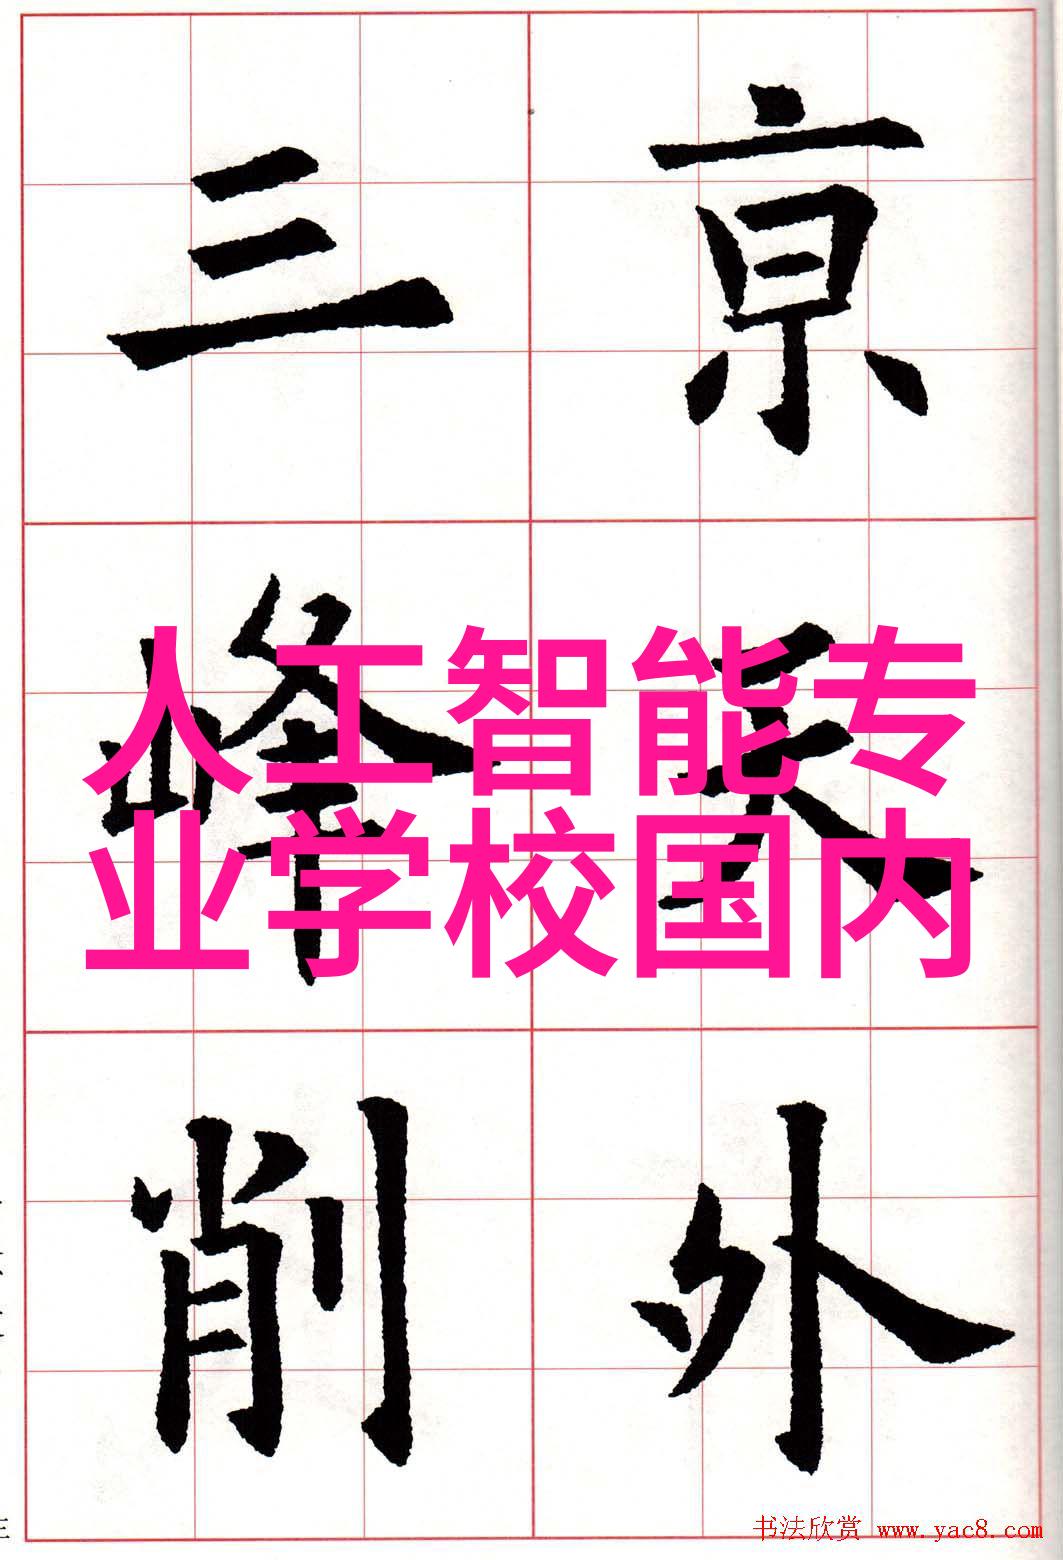 亰天外
三峰削
人工智能专
业学校国内
书法欣赏 www.yac8.com